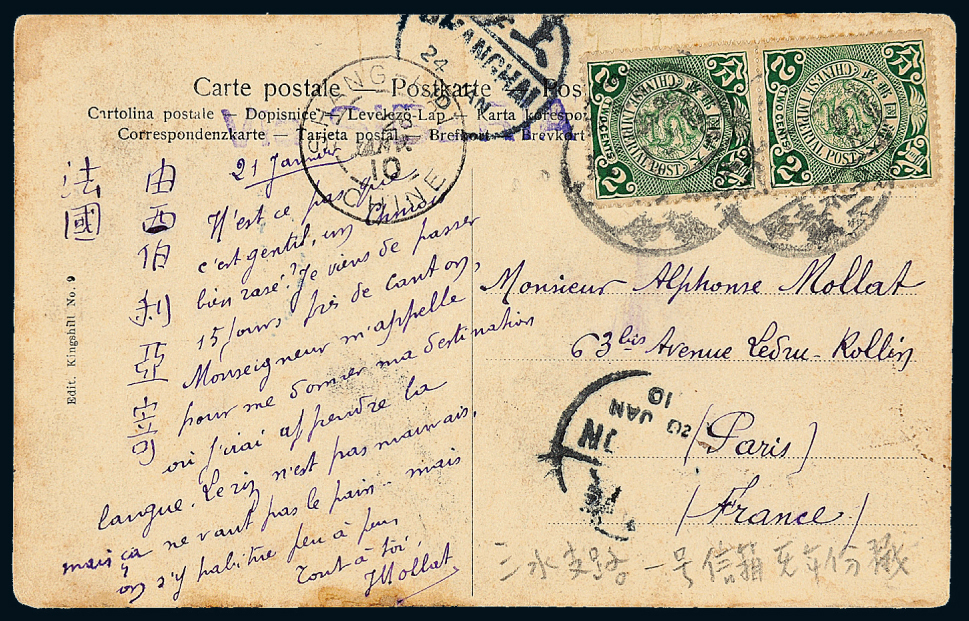 Carte postale — Postkarte — Pos
Cartolina postale — Dopisnice — Levelezö-Lap — Karta korespon
Correspondenzkarte — Tarjeta postal — Brefkort — Brevkort
法國
由西伯利亞寄
Edit. Kingshill No. 9
21 Janvier
N'est ce pas que
c'est gentil, un Chinois
bien rasé? Je viens de passer
15 jours près de Canton,
Monseigneur m'appelle
pour me donner ma destination
où j'irai apprendre la
langue. Le riz n'est pas mauvais,
mais ça ne vaut pas le pain - mais
on s'y habitue peu à peu
Tout à toi,
JMollat
SHANGHAI
24 JAN
SHANGHAI
CHINE
10
CHINESE IMPERIAL POST
TWO CENTS
2
CHINESE IMPERIAL POST
TWO CENTS
2
Monsieur Alphonse Mollat
63bis Avenue Ledru-Rollin
(Paris)
(France)
20 JAN
10
三水支路 一号信箱 无年份戳